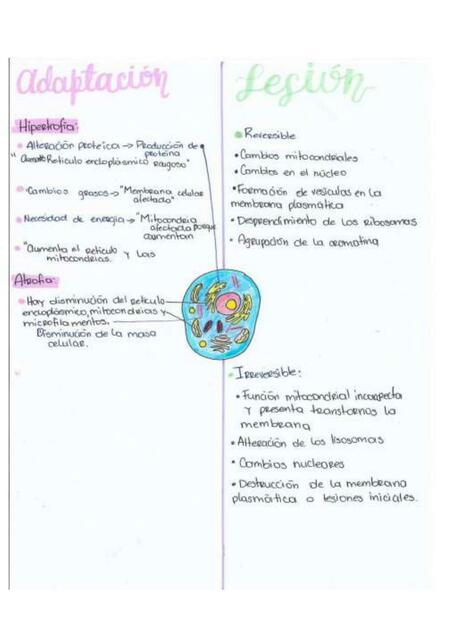 Adaptación
Hipertrofia:
Alteración proteica → Producción de
proteina
"Aumenta Reticulo endoplásmico rugoso"
Cambios grasos → "Membrana celular
afectado"
Necesidad de energia → "Mitocondria
afectada porque
aumentan
"Aumenta el reticulo y las
mitocondrias.
Atrofia:
Hay disminución del reticulo
endoplásmico, mitocondrias y
microfilamentos.
Disminución de la masa
celular.
Lesión
Reversible
• Cambios mitocondriales
• Cambios en el núcleo
• Formación de vesículas en la
membrana plasmática
• Desprendimiento de los Ribosomas
• Agrupación de la cromatina
Irreversible:
• Función mitocondrial incorrecta
y presenta transtornos la
membrana
• Alteración de los lisosomas
• Cambios nucleares
• Destrucción de la membrana
plasmática o lesiones iniciales.